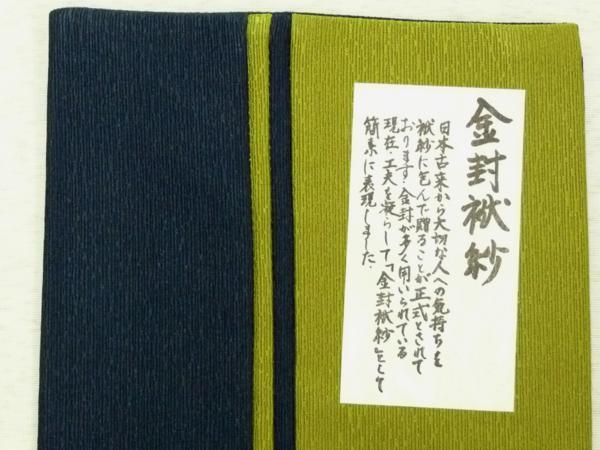 金封袱紗
日本古来から大切な人への気持ちを
袱紗に包んで贈ることが正式とされて
おります。金封が多く用いられている
現在、工夫を凝らして「金封袱紗」として
簡素に表現しました。